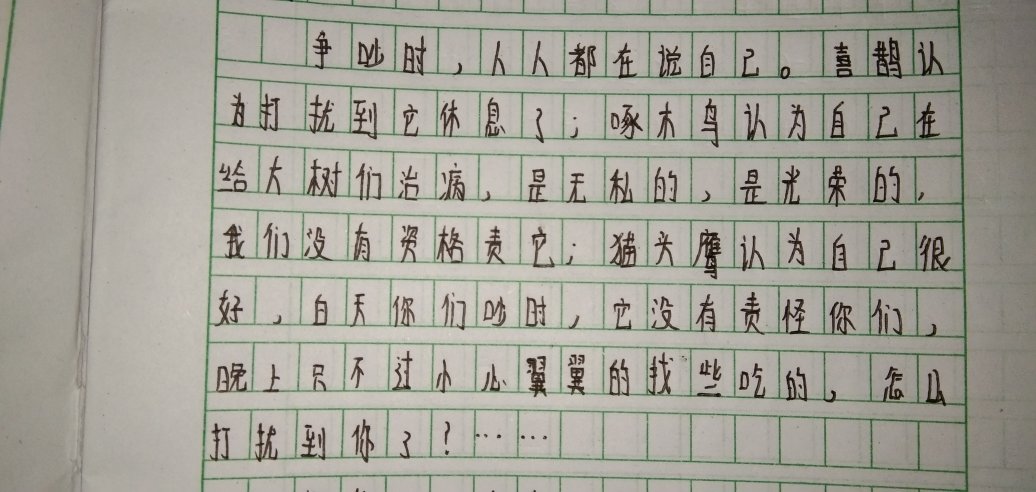 争吵时，人人都在说自己。喜鹊认
为打扰到它休息了；啄木鸟认为自己在
给大树们治病，是无私的，是光荣的，
我们没有资格责它；猫头鹰认为自己很
好，白天你们吵时，它没有责怪你们，
晚上只不过小心翼翼的找些吃的，怎么
打扰到你了？……